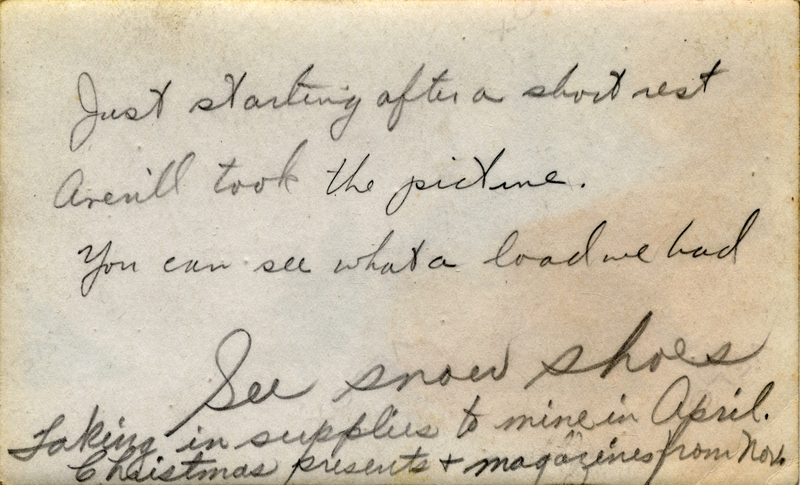 Just starting after a short rest
Averill took the picture.
You can see what a load we had
See snow shoes
Taking in supplies to mine in April.
Christmas presents + magazines from Nov.